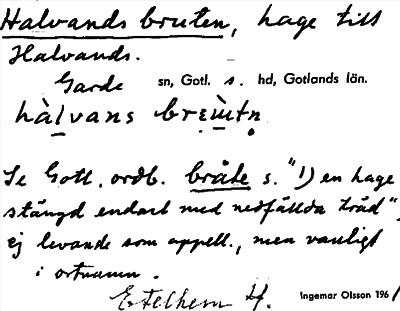 Halvands bruten, hage till
Halvands.
Garde sn, Gotl. s. hd, Gotlands län.
hàlvans brèu̇tn
Se Gotl. ordb. bråte s. "1) en hage
stängd endast med nedfällda träd",
ej levande som appell., men vanligt
i ortnamn.
Etelhem H. Ingemar Olsson 1961